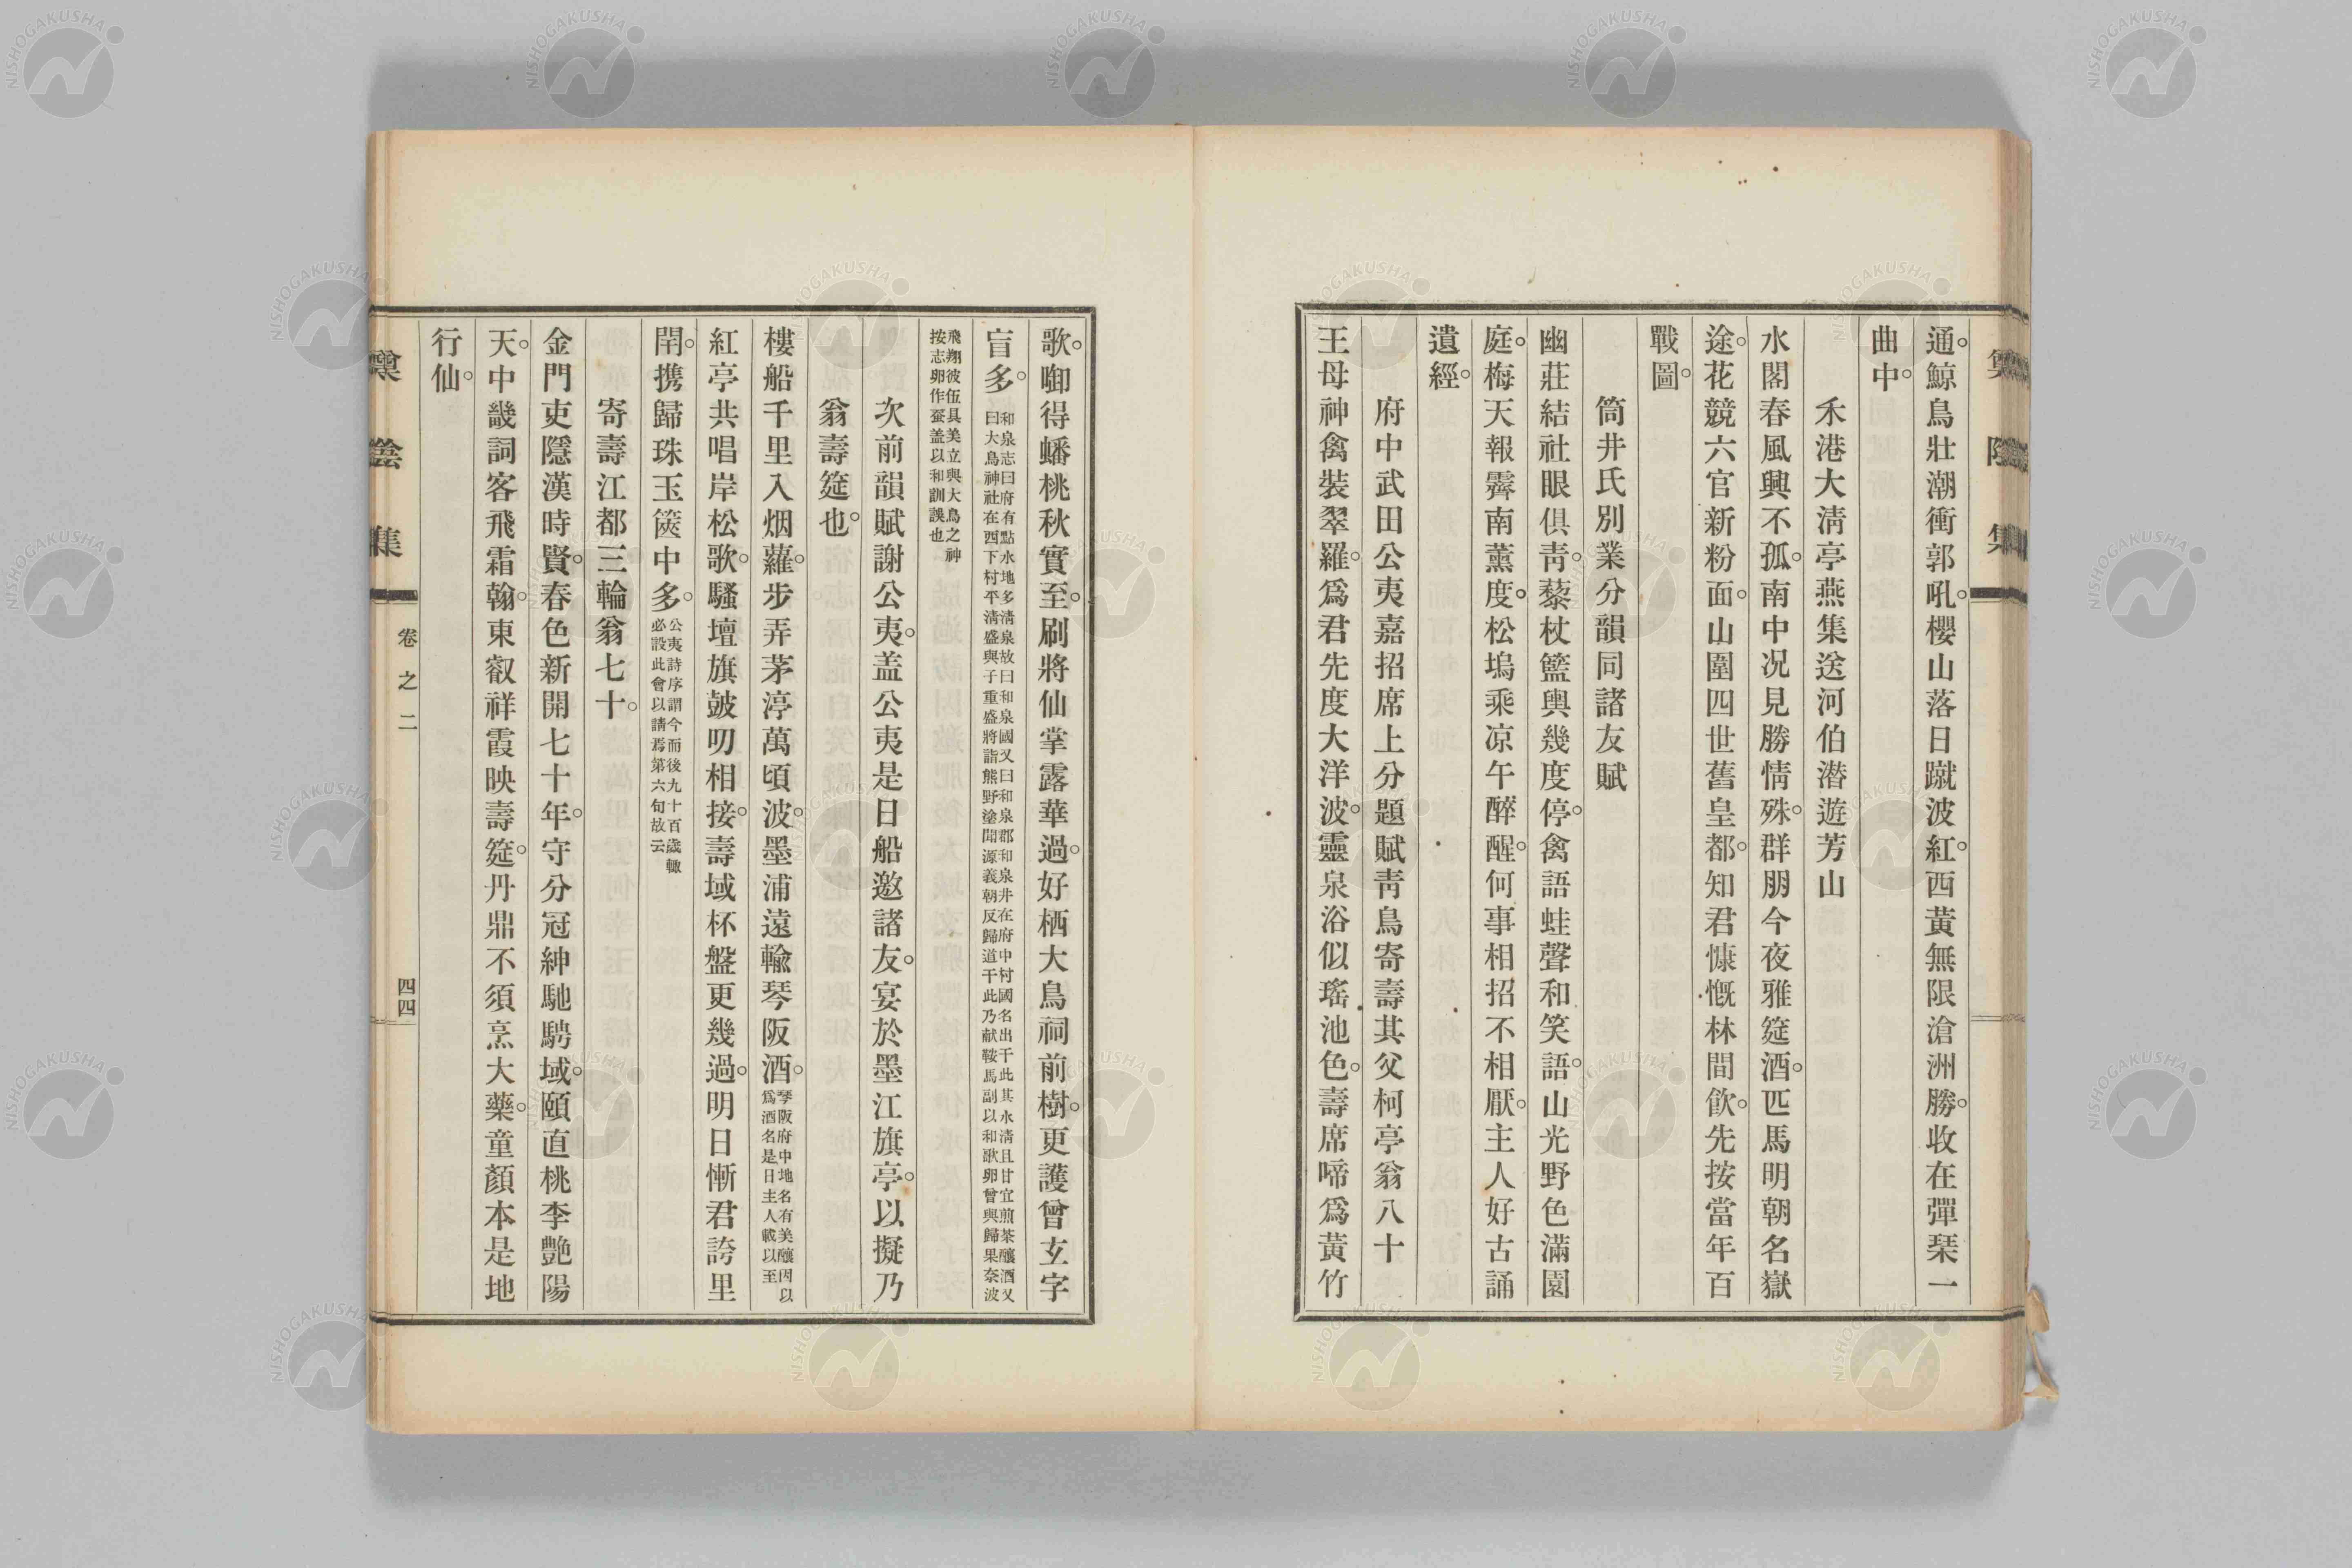 通鯨鳥壯潮衝郭吼櫻山落日蹴波紅西黃無限滄洲勝收在彈琹一
曲中
禾港大淸亭燕集送河伯潛遊芳山
水閣春風興不孤南中况見勝情殊群朋今夜雅筵酒匹馬明朝名嶽
途花競六官新粉面山圍四世舊皇都知君慷慨林間飮先按當年百
戰圖
筒井氏別業分韻同諸友賦
幽莊結社眼俱靑藜杖籃輿幾度停禽語蛙聲和笑語山光野色滿園
庭梅天報霽南薰度松塢乘凉午醉醒何事相招不相厭主人好古誦
遺經
府中武田公夷嘉招席上分題賦靑鳥寄壽其父柯亭翁八十
王母神禽裝翠羅爲君先度大洋波靈泉浴似瑤池色壽席啼爲黃竹
歌啣得蟠桃秋實至刷將仙掌露華過好栖大鳥祠前樹更護曾玄字
盲多
和泉志曰府有點水地多淸泉故曰和泉國又曰和泉郡和泉井在府中村國名出于此其水淸且甘宜煎茶釀酒又
曰大鳥神社在西下村平淸盛與子重盛將詣熊野塗聞源義朝反歸道于此乃献鞍馬副以和歌卵曾與歸果奈波
飛翔彼伍具美立與大鳥之神
按志卵作蚕盖以和訓誤也
次前韻賦謝公夷盖公夷是日船邀諸友宴於墨江旗亭以擬乃
翁壽筵也
樓船千里入烟蘿步弄茅渟萬頃波墨浦遠輸琴阪酒
琴阪府中地名有美釀因以
爲酒名是日主人載以至
紅亭共唱岸松歌騷壇旗皷叨相接壽域杯盤更幾過明日慚君誇里
閈携歸珠玉篋中多
公夷詩序謂今而後九十百歲輙
必設此會以請焉第六句故云
寄壽江都三輪翁七十
金門吏隱漢時賢春色新開七十年守分冠紳馳騁域頤直桃李艷陽
天中畿詞客飛霜翰東叡祥霞映壽筵丹鼎不須烹大藥童顏本是地
行仙
集
卷之二
四四